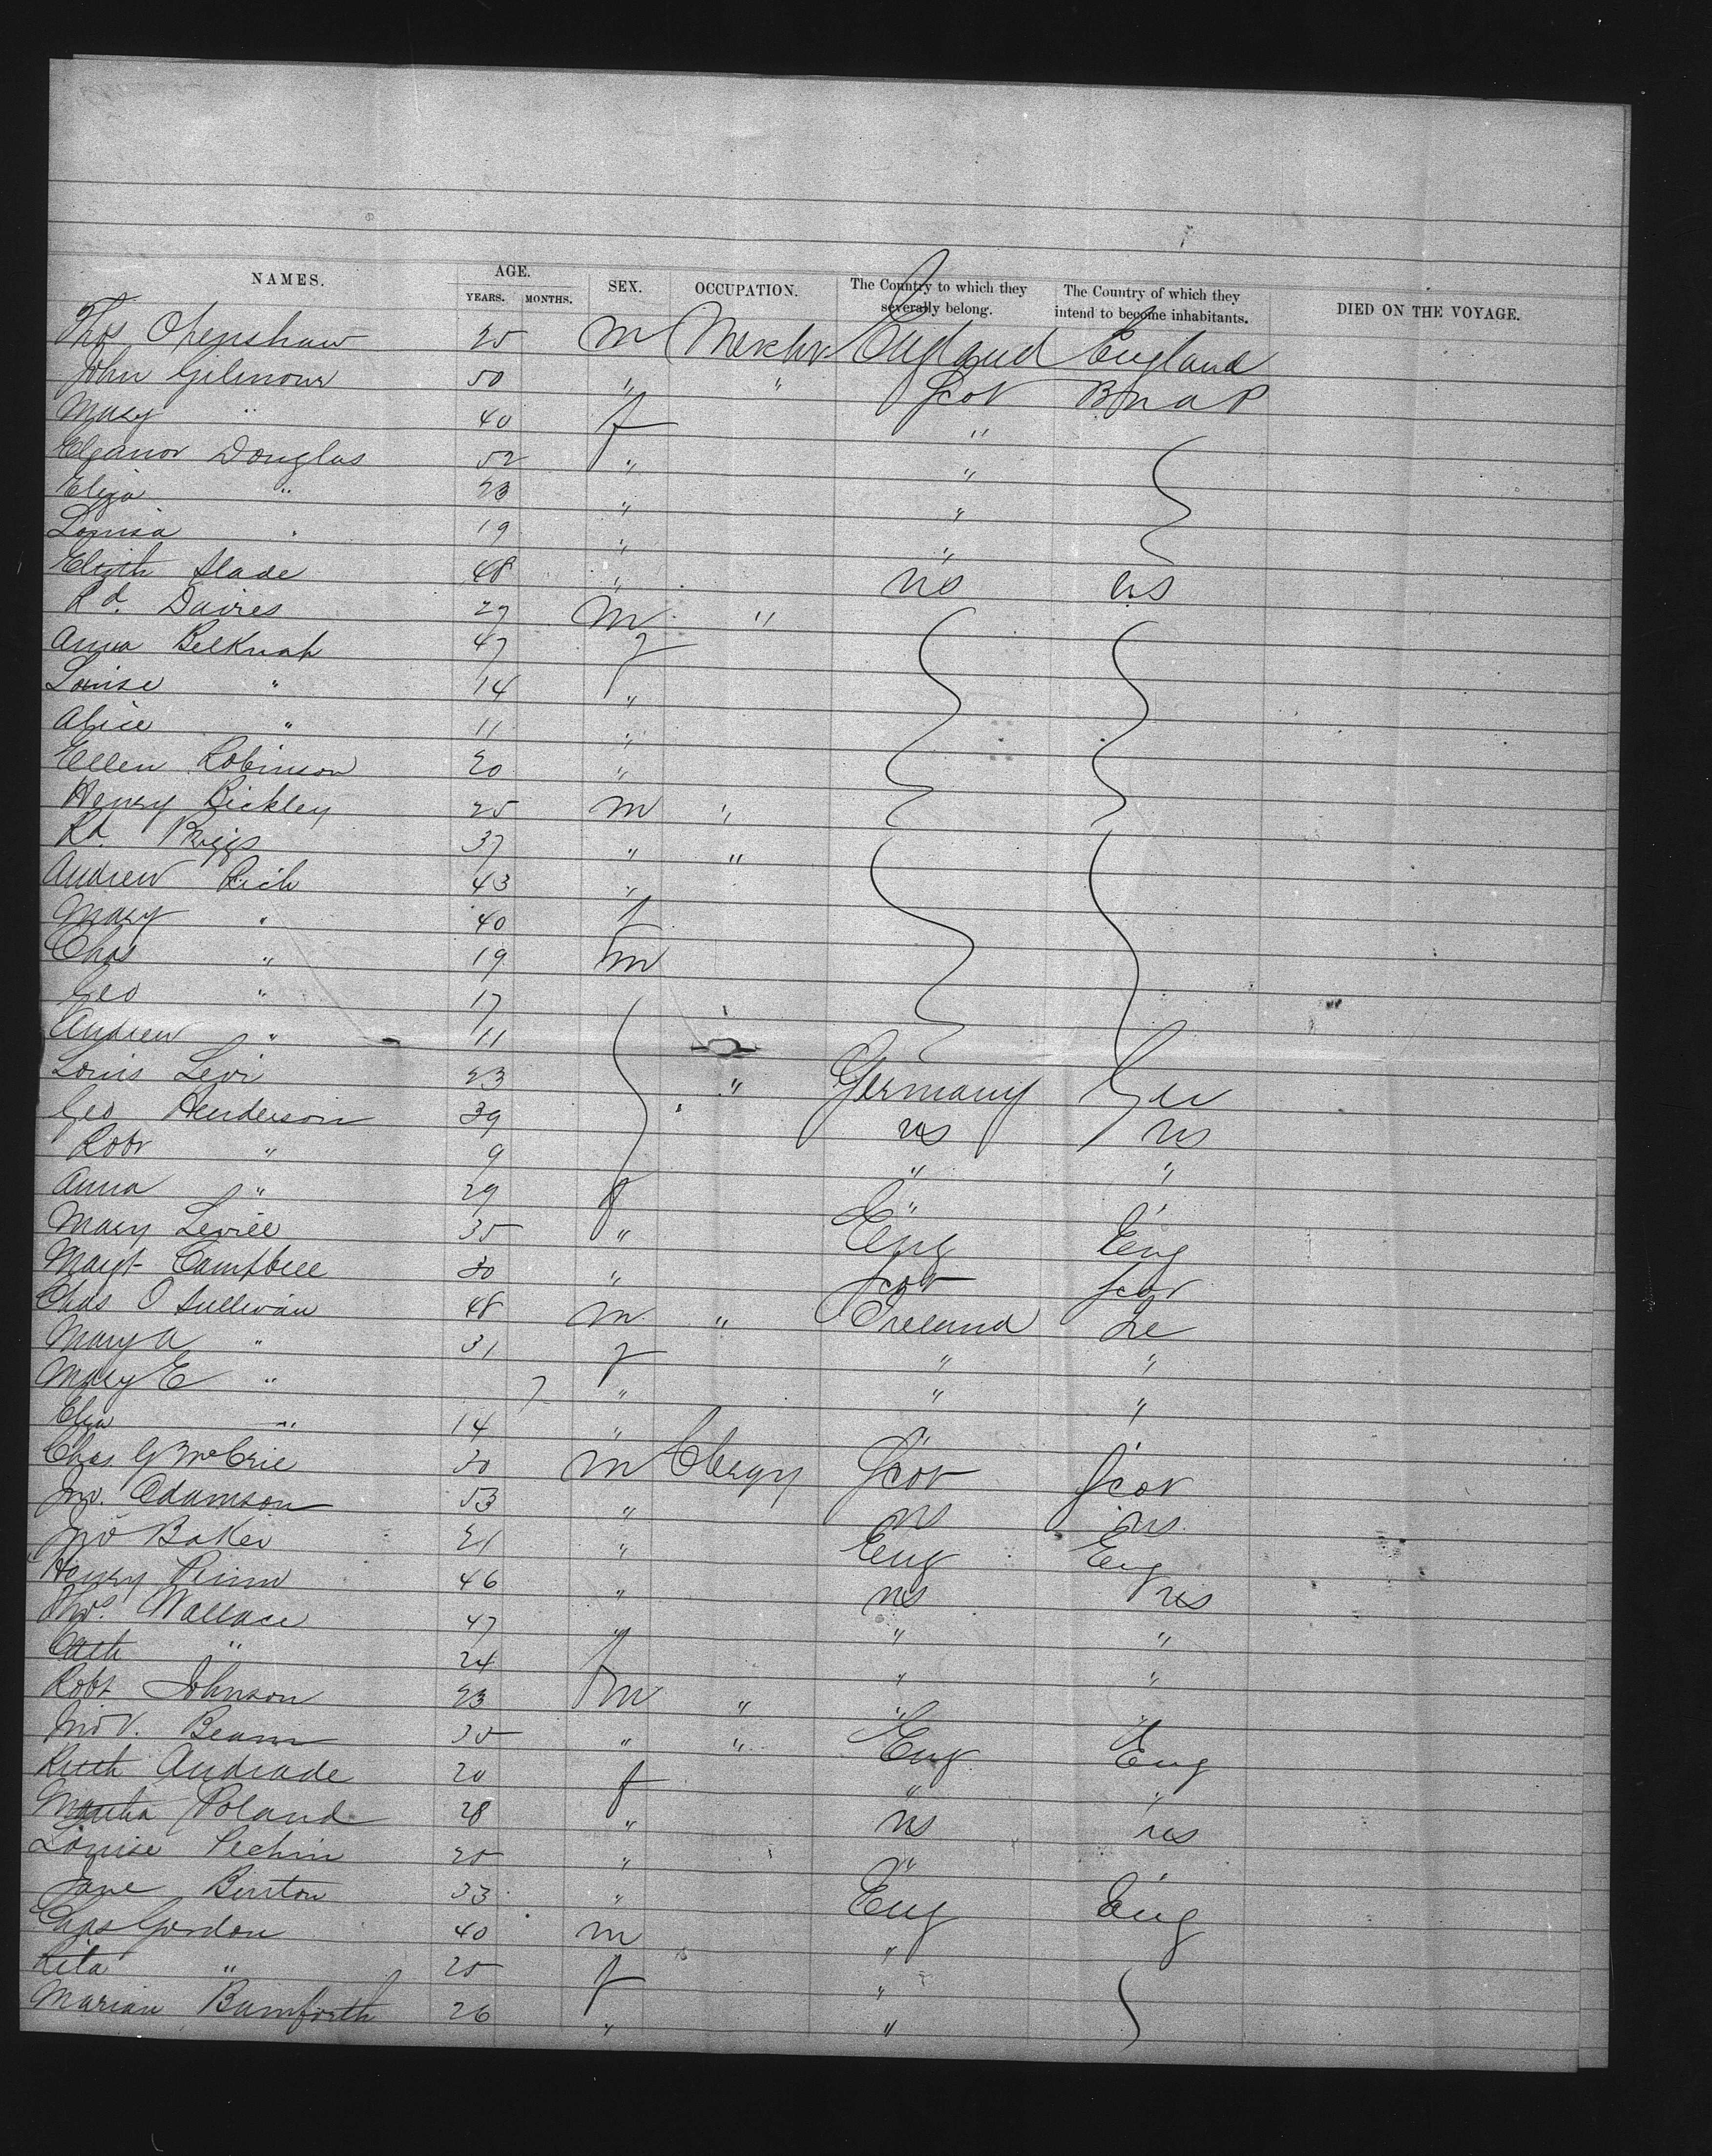 NAMES. AGE. YEARS. MONTHS. SEX. OCCUPATION. The Country to which they severally belong. The Country of which they intend to become inhabitants. DIED ON THE VOYAGE.
Thos Openshaw 25 M Mercht England England
John Gilmour 50 " " Scot B N A P
Mary " 40 f "
Eleanor Douglas 52 " "
Eliza " 23 " "
Louisa " 19 " "
Elizth Slade 48 " US US
Rd. Davies 29 M "
Anna Belknap 47 f
Louise " 14 "
Alice " 11 "
Ellen Robinson 20 "
Henry Bickley 25 M "
Rd. Briggs 37 " "
Andrew Rich 43 "
Mary " 40 f
Chas " 19 m
Geo " 17
Andrew " 11
Louis Levi 23 " Germany Ger
Geo Henderson 39 US US
Robt " 9 " "
Anna " 29 f " "
Mary 35 " Eng Eng
Margt Campbell 30 " Scot Scot
Chas O Sullivan 48 M " Ireland Ire
Mary A " 31 f " "
Mary E " 7 " " "
Eliza " 14 " " "
Chas G McCrie 30 M Clergy Scot Scot
Jno. Adamson 53 " US US
Jno Baker 21 " Eng Eng
Henry 46 " US US
Wallace 47 " " "
Cath " 24 f " "
Robt Johnson 23 m " " "
Jno V. Beam 35 " " Eng Eng
Ruth Andrade 20 f " "
Martha Poland 28 " US US
Louise Pechin 20 " " "
Jane Benton 33 " Eng Eng
Chas Gordon 40 m "
Rita " 25 f "
Marian Bamforth 26 " "